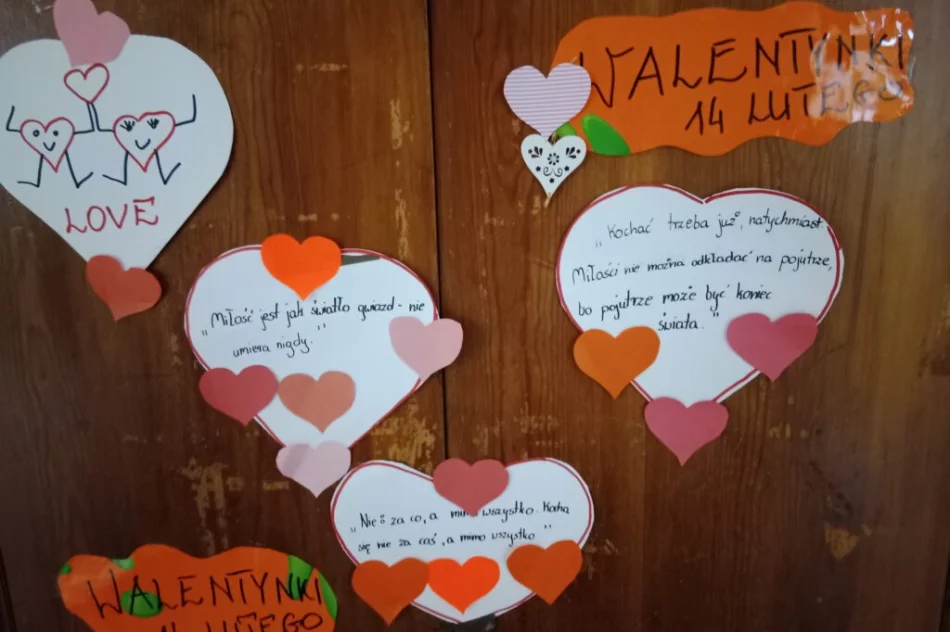 LOVE
WALENTYNKI
14 LUTEGO
„Kochać trzeba już, natychmiast.
Miłości nie można odkładać na pojutrze,
bo pojutrze może być koniec
świata."
„Miłość jest jak światło gwiazd - nie
umiera nigdy."
„Nie za co, a mimo wszystko. Kocha
się nie za coś, a mimo wszystko"
WALENTYNKI
14 LUTEGO